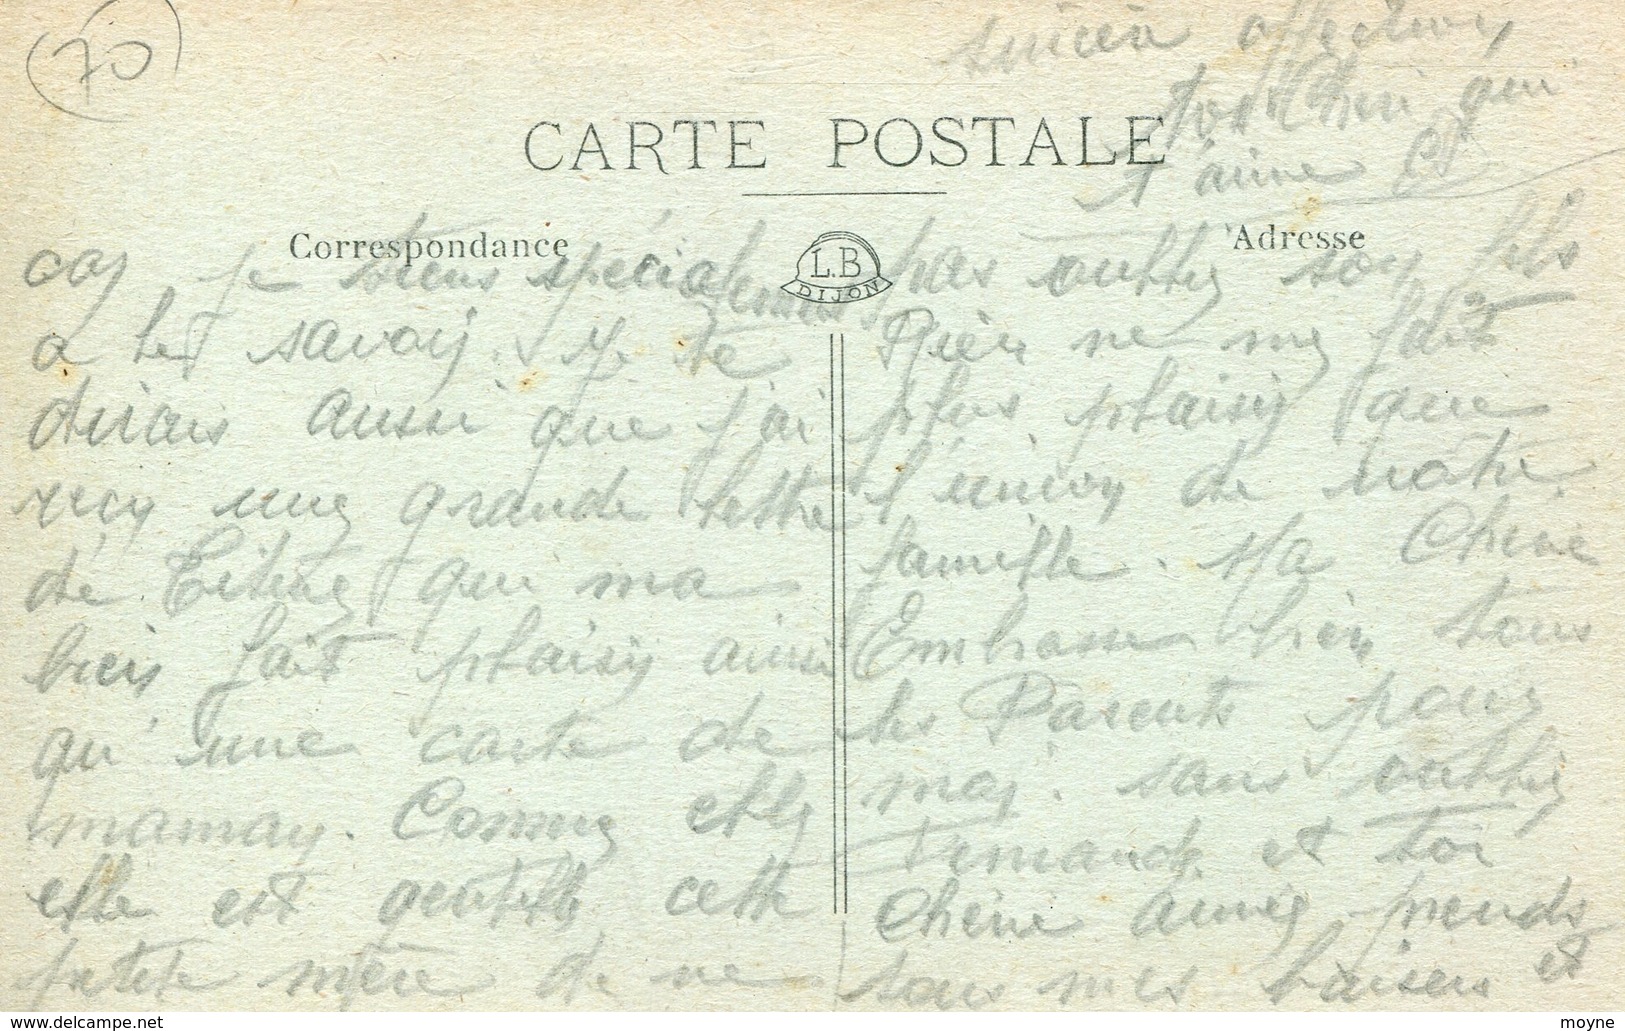 70
CARTE POSTALE
Correspondance
L.B
DIJON
Adresse
car je tiens spécialement
a le savoir. Je te
dirais aussi que j'ai
recu une grande lettre
de qui ma
bien fait plaisir ainsi
qu'une carte de
maman. Comme elle
elle est gentille cette
petite mère de ne
pas oublier son fils
Rien ne me fait
plus plaisir que
l'union de notre
famille. Ma Cherie
Embrasse bien tous
les Parents pour
moi. sans oublier
Fernande et toi
Cherie aimée prends
tous mes baisers et
sincère affection
ton Cheri qui
t'aime
moyne